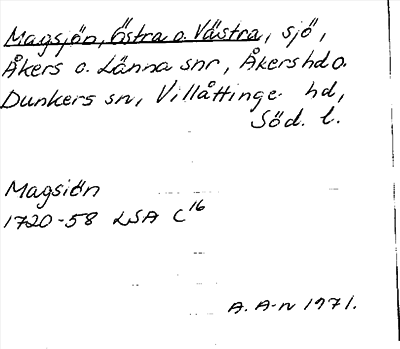 Magsjön, Östra o. Västra, sjö,
Åkers o. Länna snr, Åkers hd o.
Dunkers sn, Villåttinge hd,
Söd. l.
Magsiön
1720-58 LSA C16
A. A-n 1971.